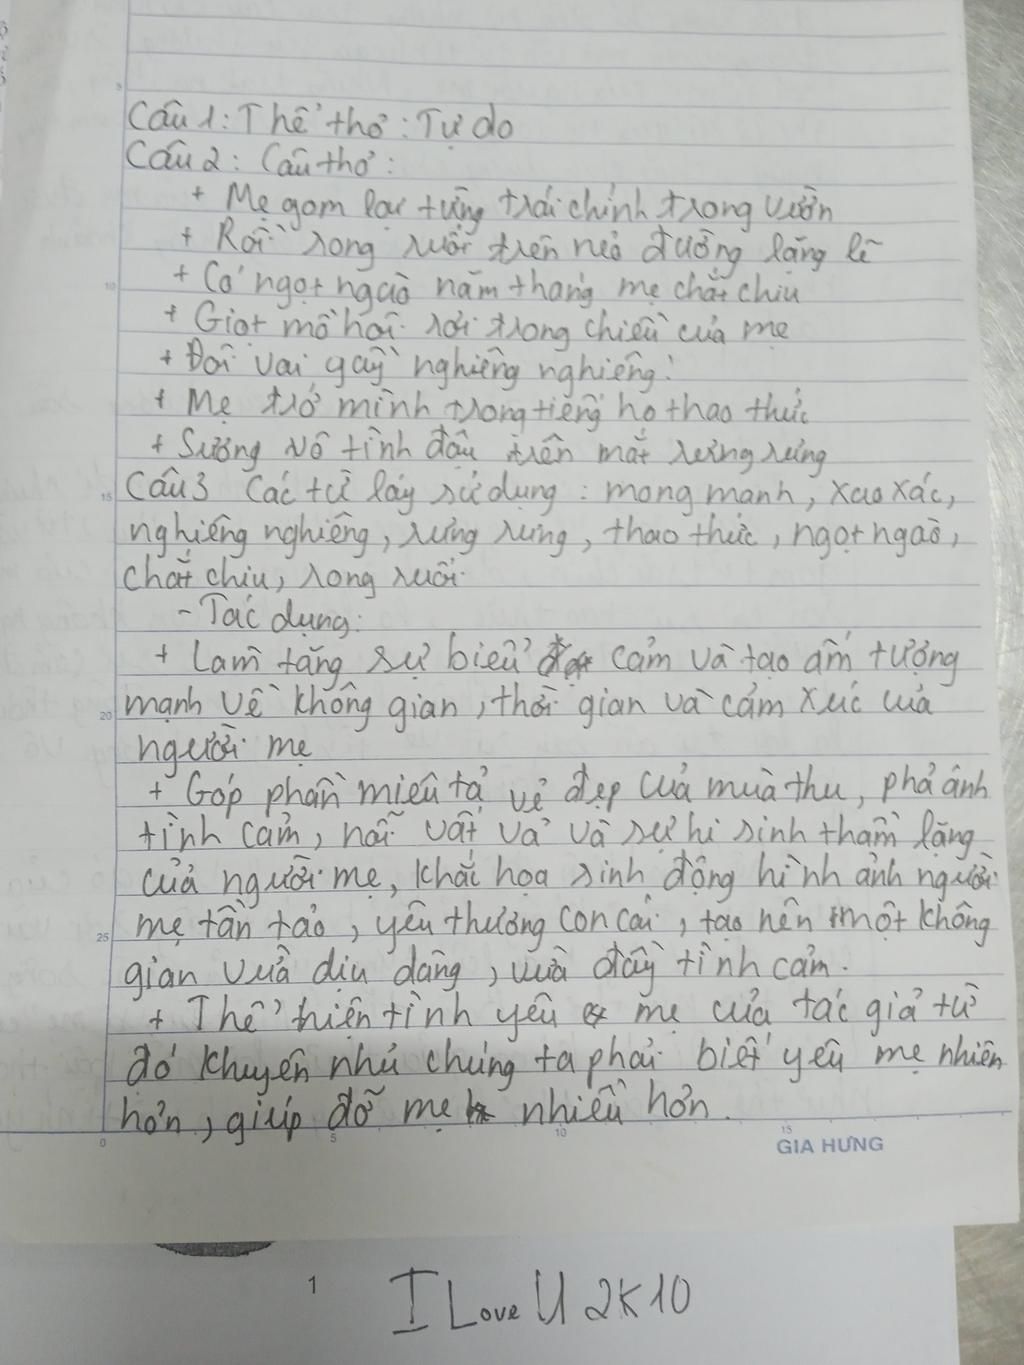 Câu 1: Thể thơ: Tự do
Câu 2: Câu thơ:
+ Mẹ gom lại từng trái chính trong vườn
+ Rồi rong ruổi trên nẻo đường lặng lẽ
+ Cớ ngọt ngào năm tháng mẹ chắt chiu
+ Giọt mồ hôi rơi trong chiều của mẹ
+ Đôi vai gầy nghiêng nghiêng!
+ Mẹ trở mình trong tiếng ho thao thức
+ Sương vô tình đậu trên mắt rưng rưng
Câu 3 Các từ láy sử dụng: mong manh, xao xác,
nghiêng nghiêng, rưng rưng, thao thức, ngọt ngào,
chắt chiu, rong ruổi.
- Tác dụng:
+ Làm tăng sự biểu cảm và tạo ấm tượng
mạnh về không gian, thời gian và cảm xúc của
người mẹ
+ Góp phần miêu tả vẻ đẹp của mùa thu, phả ánh
tình cảm, nỗi vất vả và sự hi sinh thầm lặng
của người mẹ, khắc họa sinh động hình ảnh người
mẹ tần tảo, yêu thương con cái, tạo nên một không
gian vừa dịu dàng, vừa đầy tình cảm.
+ Thể hiện tình yêu mẹ của tác giả từ
đó khuyên nhủ chúng ta phải biết yêu mẹ nhiên
hơn, giúp đỡ mẹ nhiều hơn.
GIA HƯNG
1
I Love U 2K10